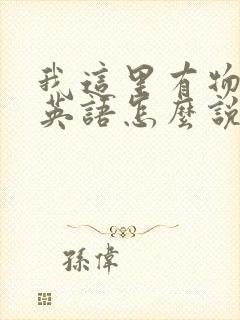 我這里有物
英語怎麼說
孫偉